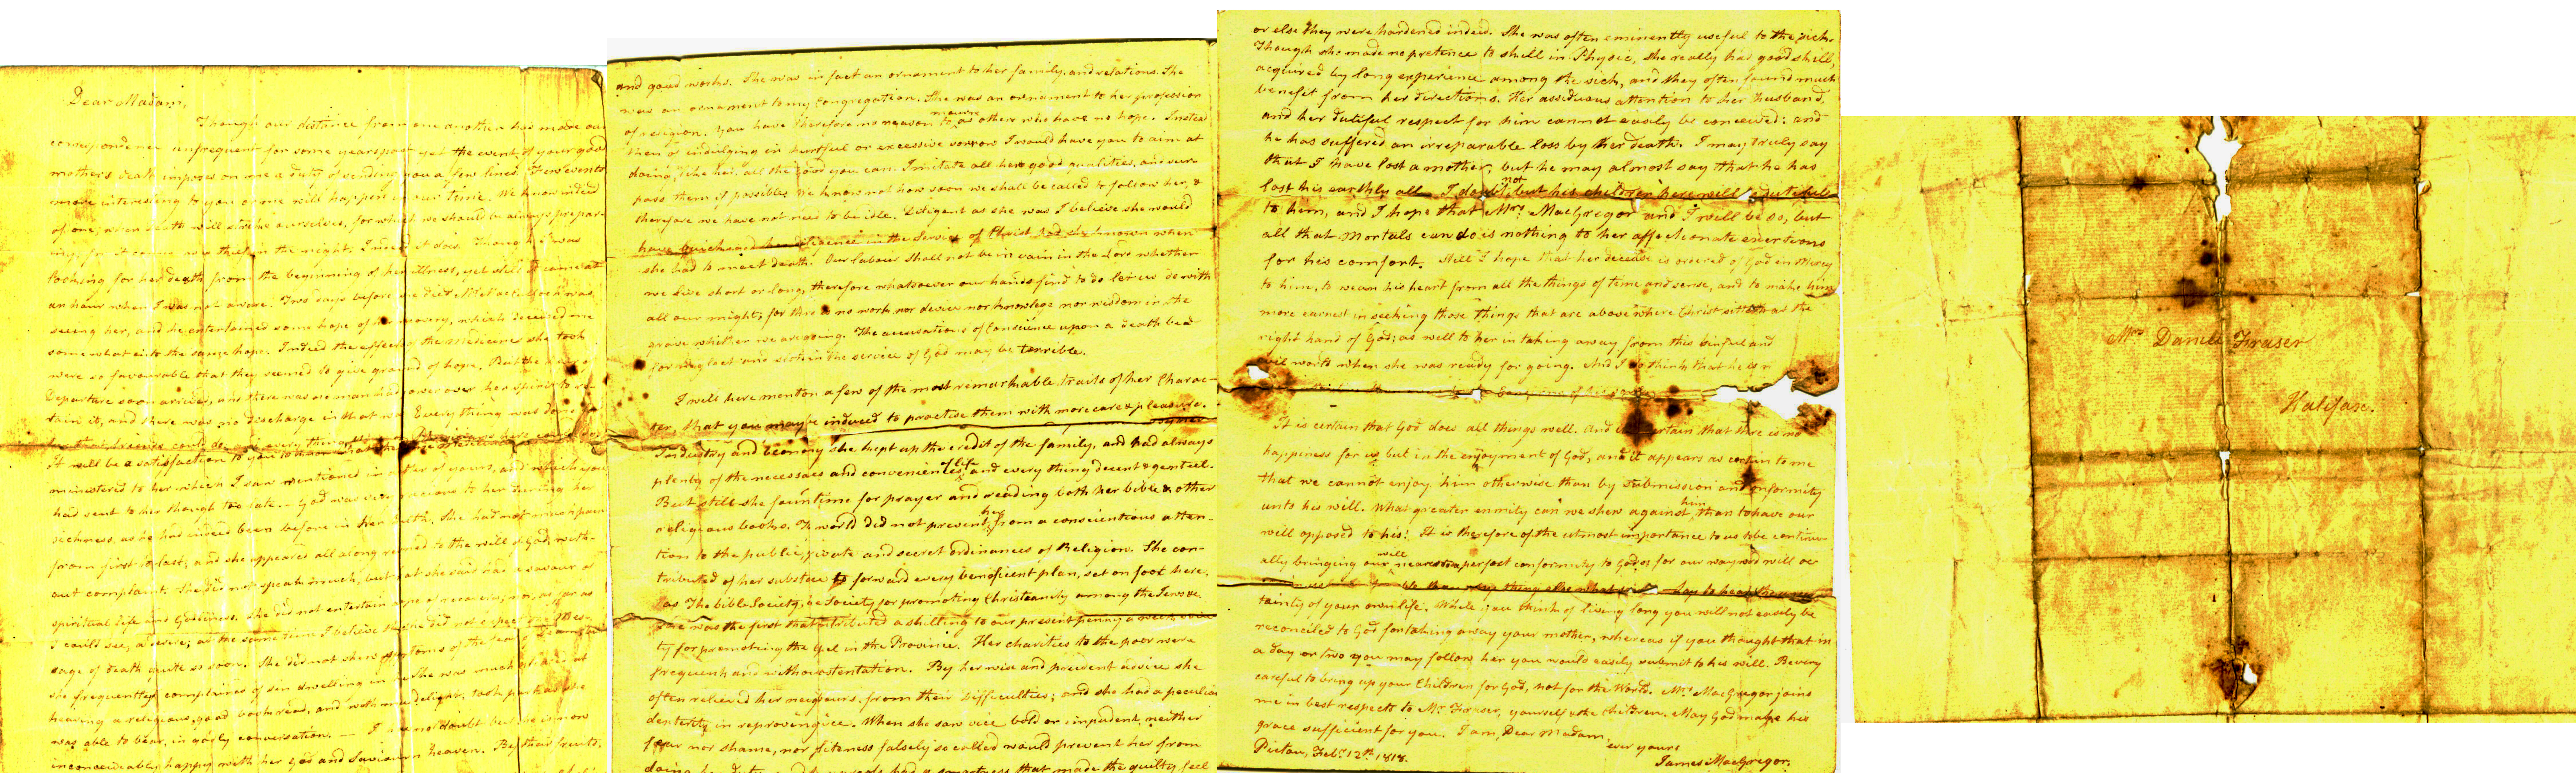 Dear Madam,
Though our distance from one another has made our
correspondence unfrequent for some years past yet the event of your good
mothers death imposes on me a duty of sending you a few lines. Few events
more interesting to you or me will happen in our time. We know indeed
of one, when death will strike ourselves, for which we should be always prepar-
ing; for it comes as a thief in the night. Indeed it does. Though I was
looking for her death from the beginning of her illness, yet still it came at
an hour when I was not aware. Two days before she died was
seeing her, and he entertained some hope of her recovery, which deceived me
somewhat into the same hope. Indeed the effects of the medicines she took
were so favourable that they seemed to give ground of hope. But the
departure soon arrived, and there was no man had power over her spirit to re-
tain it, and there was no discharge in that war. Every thing was done
It will be a satisfaction to you to
ministered to her which I saw mentioned in letter of yours, and which you
had sent to her though too late. God was very gracious to her during her
sickness, as he has indeed been before in her health. She had not much pain
from first to last; and she appeared all along resigned to the will of God, with-
out complaint. She did not speak much, but what she said had a savour of
spiritual life and Godliness. She did not entertain hope of recovering, nor, as far as
I could see, a desire; at the same time I believe that she did not expect the mes-
sage of death quite so soon. She did not shew symptoms of the
she frequently complained of sin dwelling in her. She was much
hearing a religious, good book read, and with much delight, took part as she
was able to bear, in godly conversation. — I do not doubt but she is now
inconceivably happy with her God and Saviour in heaven. By their fruits
and good works. She was in fact an ornament to her family and relations. She
was an ornament to my congregation. She was an ornament to her profession
of religion. You have therefore no reason to mourn as others who have no hope. Instead
then of indulging in hurtful or excessive sorrow I would have you to aim at
doing, like her, all the good you can. Imitate all her good qualities, and sur-
pass them if possible. We know not how soon we shall be called to follow her, &
therefore we have not need to be idle. Diligent as she was I believe she would
have quickened her diligence in the service of Christ had she known when
she had to meet death. Our labour shall not be in vain in the Lord whether
we live short or long, therefore whatsoever our hands find to do let us do with
all our might; for there is no work, nor device nor knowlege nor wisdom in the
grave whither we are going. The accusations of Conscience upon a death bed
for neglect in the service of God may be terrible.
I will here mention a few of the most remarkable traits of her Charac-
ter, that you may be induced to practise them with more care & pleasure.
Industry and Œconomy she kept up the credit of the family, and had always
plenty of the necessaries and conveniences of life, and every thing decent & genteel.
But still she foun time for prayer and reading both her bible & other
religious books. The world did not prevent her from a conscientious atten-
tion to the public, private and secret ordinances of Religion. She con-
tributed of her substance to forward every beneficent plan, set on foot here,
as The bible Society, Society for promoting Christianity among the Jews &c.
She was the first that contributed a shilling to our present penny a week
ty for promoting the Gospel in the Province. Her charities to the poor were
frequent and without ostentation. By her wise and prudent advice she
often relieved her neighbours from their difficulties; and she had a peculiar
dexterity in reproving vice. When she saw vice bold or impudent, neither
fear nor shame, nor politeness falsely so called would prevent her from
doing her duty, and her reproofs had a smartness that made the guilty feel
or else they were hardened indeed. She was often eminently useful to the sick.
Though she made no pretence to skill in Physic, she really had good skill,
acquired by long experience among the sick, and they often found much
benefit from her directions. Her assiduous attention to her husband,
and her dutiful respect for him cannot easily be conceived: and
he has suffered an irreparable loss by her death. I may truly say
that I have lost a mother, but he may almost say that he has
lost his earthly all. I doubt not but his children here will dutiful
to him, and I hope that Mrs. MacGregor and I will be so, but
all that mortals can do is nothing to her affectionate exertions
for his comfort. Still I hope that her decease is ordered of God in Mercy
to him, to wean his heart from all the things of time and sense, and to make him
more earnest in seeking those things that are above where Christ sitteth at the
right hand of God; as well to her in taking away from this sinful and
evil world when she was ready for going. And I do think that he
It is certain that God does all things well. And certain that there is no
happiness for us but in the enjoyment of God, and it appears as certain to me
that we cannot enjoy him otherwise than by submission and conformity
unto his will. What greater enmity can we shew against him, than to have our
will opposed to his? It is therefore of the utmost importance to us to be continu-
ally bringing our will nearer to a perfect conformity to God's; for our wayward will
tainty of your own life. While you think of living long you will not easily be
reconciled to God for taking away your mother, whereas if you thought that in
a day or two you may follow her you would easily submit to his will. Be very
careful to bring up your Children for God, not for the World. Mrs. MacGregor joins
me in best respects to Mr. Fraser, yourself & the children. May God make his
grace sufficient for you. I am, Dear Madam,
ever yours
Pictou, Feby. 12th. 1818.
James MacGregor.
Mrs Daniel Fraser
Halifax.